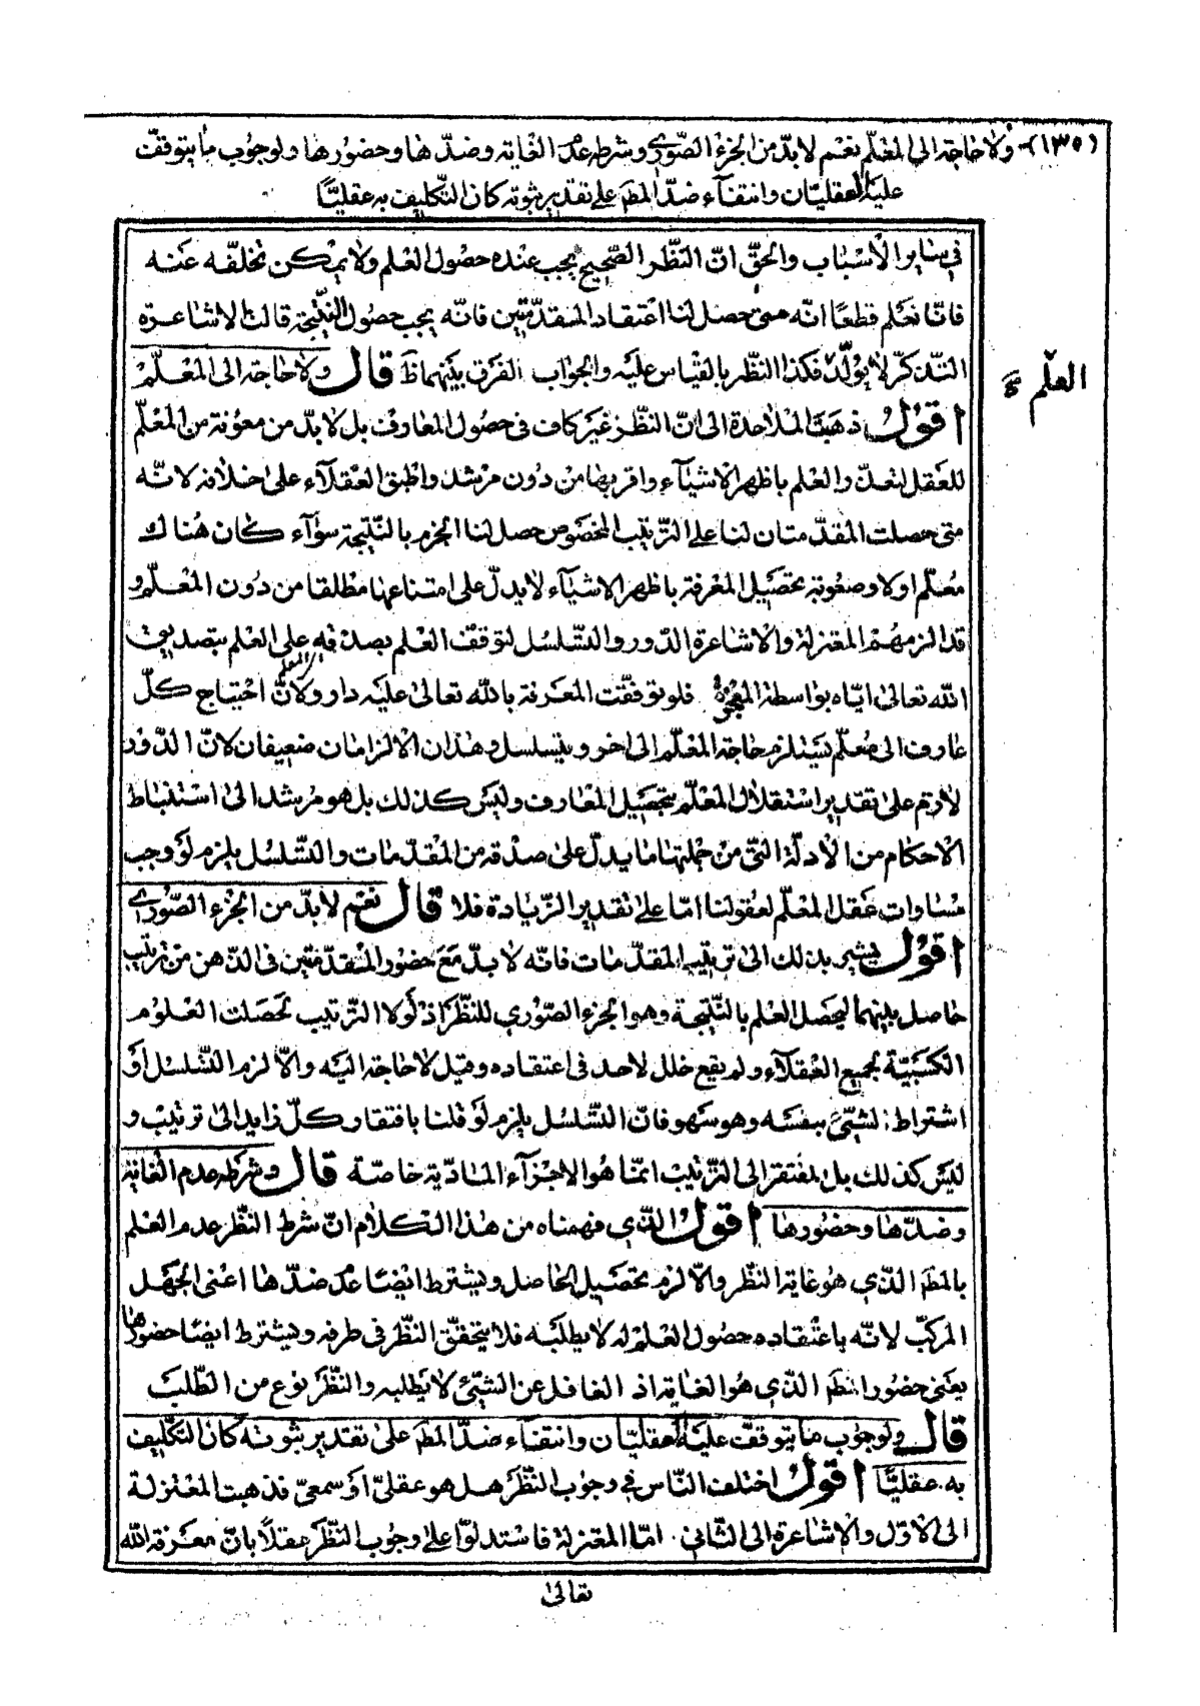 (١٣٥)- ولا حاجة الى المعلّم نعم لا بدّ من الجزء الصّوريّ وشرطه عدم الغاية وضدّها وحضورها ولوجوب ما يتوقف
عليه العقليّان وانتفاء ضدّ المط على تقدير ثبوته كان التّكليف به عقليًّا
في ساير الأسباب والحقّ انّ النّظر الصّحيح يجب عنده حصول العلم ولا يمكن تخلّفه عنه
فانّا نعلم قطعًا انّه متى حصل لنا اعتقاد المقدّمتين فانّه يجب حصول النّتيجة قالت الاشاعرة
التّذكّر لا يولّد فكذا النّظر بالقياس عليه والجواب الفرق بينهما ظ قال ولا حاجة الى المعلّم
العلم
اقول ذهبت الملاحدة الى انّ النّظر غير كاف في حصول المعارف بل لا بدّ من معونة من المعلّم
للعقل لتعذّر العلم باظهر الاشياء واقربها من دون مرشد واطبق العقلاء على خلافه لانّه
متى حصلت المقدّمتان لنا على التّرتيب المخصوص حصل لنا الجزم بالنّتيجة سواء كان هناك
معلّم اولا وصعوبة تحصيل المعرفة باظهر الاشياء لا يدلّ على امتناعها مطلقا من دون المعلّم و
قد الزمهم المعتزلة والاشاعرة الدّور والتّسلسل لتوقف العلم بصدقه على العلم بتصديق
الله تعالى ايّاه بواسطة المعجزة فلو توقّفت المعرفة بالله تعالى عليه دار ولانّ احتياج كلّ
عارف الى معلّم يستلزم حاجة المعلّم الى اخر ويتسلسل وهذان الالزامان ضعيفان لانّ الدّور
لازم على تقدير استقلال المعلّم بتحصيل المعارف وليس كذلك بل هو مرشد الى استنباط
الاحكام من الادلّة التي من جملتها ما يدلّ على صدقه من المقدّمات والتّسلسل يلزم لو وجب
مساوات عقل المعلّم لعقولنا امّا على تقدير الزّيادة فلا قال نعم لا بدّ من الجزء الصّوريّ
اقول يشير بذلك الى ترتيب المقدّمات فانّه لا بدّ مع حضور المقدّمتين في الذّهن من ترتيب
حاصل بينهما ليحصل العلم بالنّتيجة وهو الجزء الصّوري للنّظر اذ لولا التّرتيب لحصلت العلوم
الكسبيّة لجميع العقلاء ولم يقع خلل لاحد في اعتقاده وقيل لا حاجة اليه والّا لزم التّسلسل أو
اشتراط الشّيء بنفسه وهو سهو فانّ التّسلسل يلزم لو قلنا بافتقار كلّ زايد الى ترتيب و
ليس كذلك بل المفتقر الى التّرتيب انّما هو الاجزاء المادّية خاصّة قال وشرطه عدم الغاية
وضدّها وحضورها اقول الّذي فهمناه من هذا الكلام انّ شرط النّظر عدم العلم
بالمط الّذي هو غاية النّظر والّا لزم تحصيل الحاصل ويشترط ايضًا عدم ضدّها اعنى الجهل
المركّب لانّه باعتقاده حصول العلم له لا يطلبه فلا يتحقق النّظر في طرفه ويشترط ايضًا حضورها
يعنى حضور المط الّذي هو الغاية اذ الغافل عن الشّيء لا يطلبه والنّظر نوع من الطّلب
قال ولوجوب ما يتوقف عليه العقليّان وانتفاء ضدّ المط على تقدير ثبوته كان التّكليف
به عقليًّا اقول اختلف النّاس في وجوب النّظر هل هو عقليّ أو سمعيّ فذهبت المعتزلة
الى الاوّل والاشاعرة الى الثّاني . امّا المعتزلة فاستدلّوا على وجوب النّظر عقلًا بانّ معرفة الله
تعالى